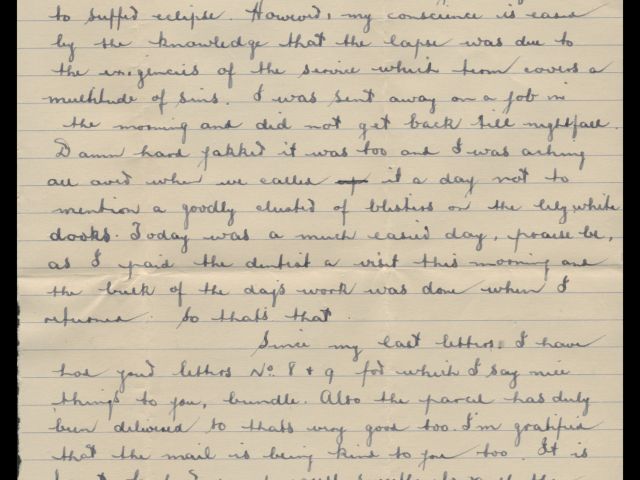 to suffer eclipse. However, my conscience is eased
by the knowledge that the lapse was due to
the exigencies of the service which term covers a
multitude of sins. I was sent away on a job in
the morning and did not get back till nightfall.
Damn hard yakker it was too and I was aching
all over when we called up it a day not to
mention a goodly cluster of blisters on the lily white
dooks. Today was a much easier day, praise be,
as I paid the dentist a visit this morning and
the bulk of the days work was done when I
returned. So thats that.
Since my last letters, I have
had your letters No. 8 & 9 for which I say nice
things to you, bundle. Also the parcel has duly
been delivered so thats very good too. I'm gratified
that the mail is being kind to you too. It is